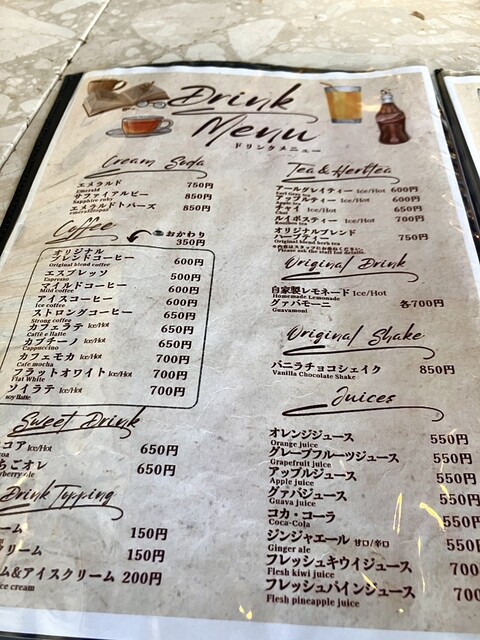 Drink
Menu
ドリンクメニュー
Cream Soda
エメラルド 750円
Emerald
サファイアルビー 850円
Sapphire ruby
エメラルドトパーズ 850円
Coffee
おかわり
350円
オリジナル
ブレンドコーヒー 600円
Original blend coffee
エスプレッソ 500円
Espresso
マイルドコーヒー 600円
Mild coffee
アイスコーヒー 600円
Ice coffee
ストロングコーヒー 650円
Strong coffee
カフェラテ Ice/Hot 650円
Caffè e llatte
カプチーノ Ice/Hot 650円
Cappuccino
カフェモカ Ice/Hot 700円
Cafe mocha
フラットホワイト Ice/Hot 700円
Flat White
ソイラテ Ice/Hot 700円
soy llatte
Sweet Drink
コア Ice/Hot 650円
ちごオレ 650円
Drink Topping
ーム 150円
クリーム 150円
ム&アイスクリーム 200円
ice cream
Tea & Herbtea
アールグレイティー Ice/Hot 600円
アップルティー Ice/Hot 600円
チャイ Ice/Hot 650円
ルイボスティー Ice/Hot 700円
オリジナルブレンド
ハーブティー 750円
Original blend herb tea
Please ask the staff for details.
Original Drink
自家製レモネード Ice/Hot
Homemade Lemonade
グァバモーニ 各700円
Guavamoni
Original Shake
バニラチョコシェイク 850円
Vanilla Chocolate Shake
Juices
オレンジジュース 550円
Orange juice
グレープフルーツジュース 550円
Grapefruit juice
アップルジュース 550円
Apple juice
グァバジュース 550円
Guava juice
コカ・コーラ 550円
Coca-Cola
ジンジャエール 甘口/辛口 550
Ginger ale
フレッシュキウイジュース 700
Flesh kiwi juice
フレッシュパインジュース 700
Flesh pineapple juice